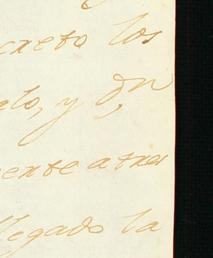 creto los
elo, y Dn
ente a tra
llegado la